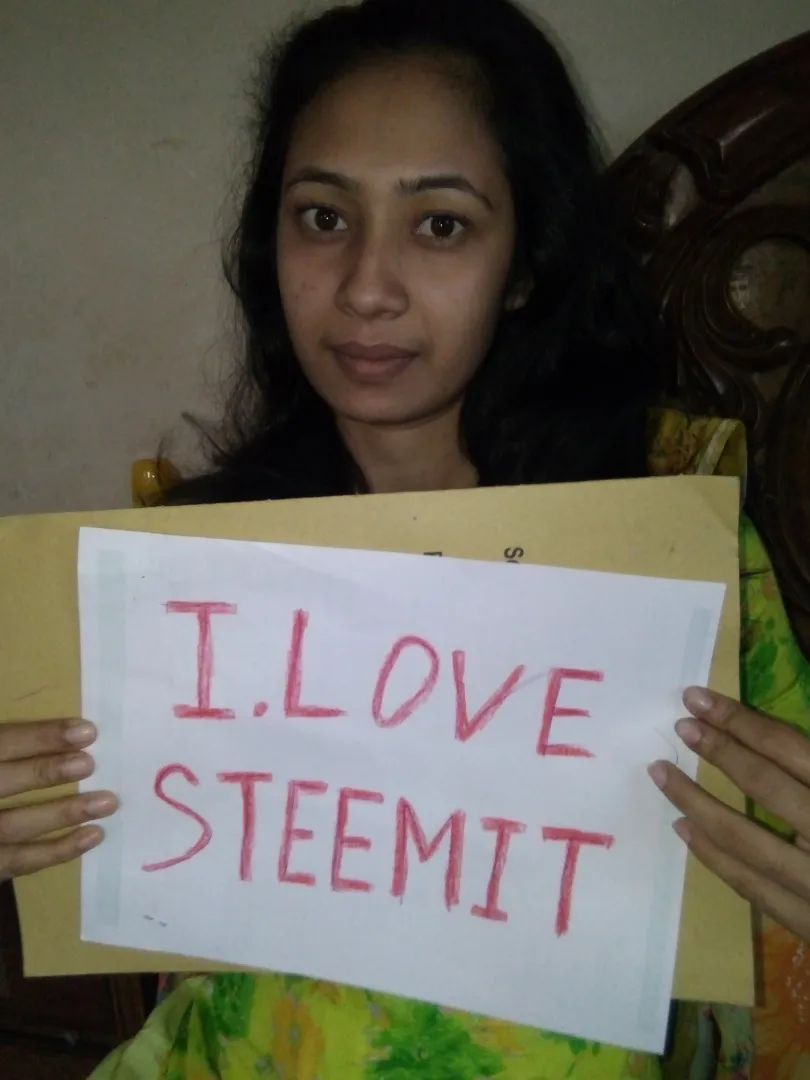 I.LOVE
STEEMIT